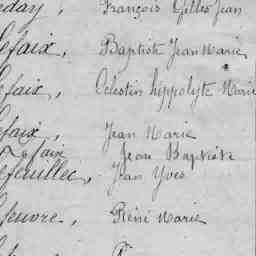 eday, François Gilles Jean
efaix, Baptiste Jean Marie
efaix, Celestin hippolyte Marie
efaix, Jean Marie
Lefaix Jean Baptiste
efeuillec, Jean Yves
efeuvre, Réné Marie